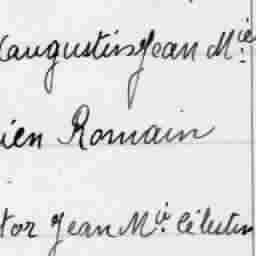 augustin Jean Mie
ien Romain
tor Jean Mie Célestin